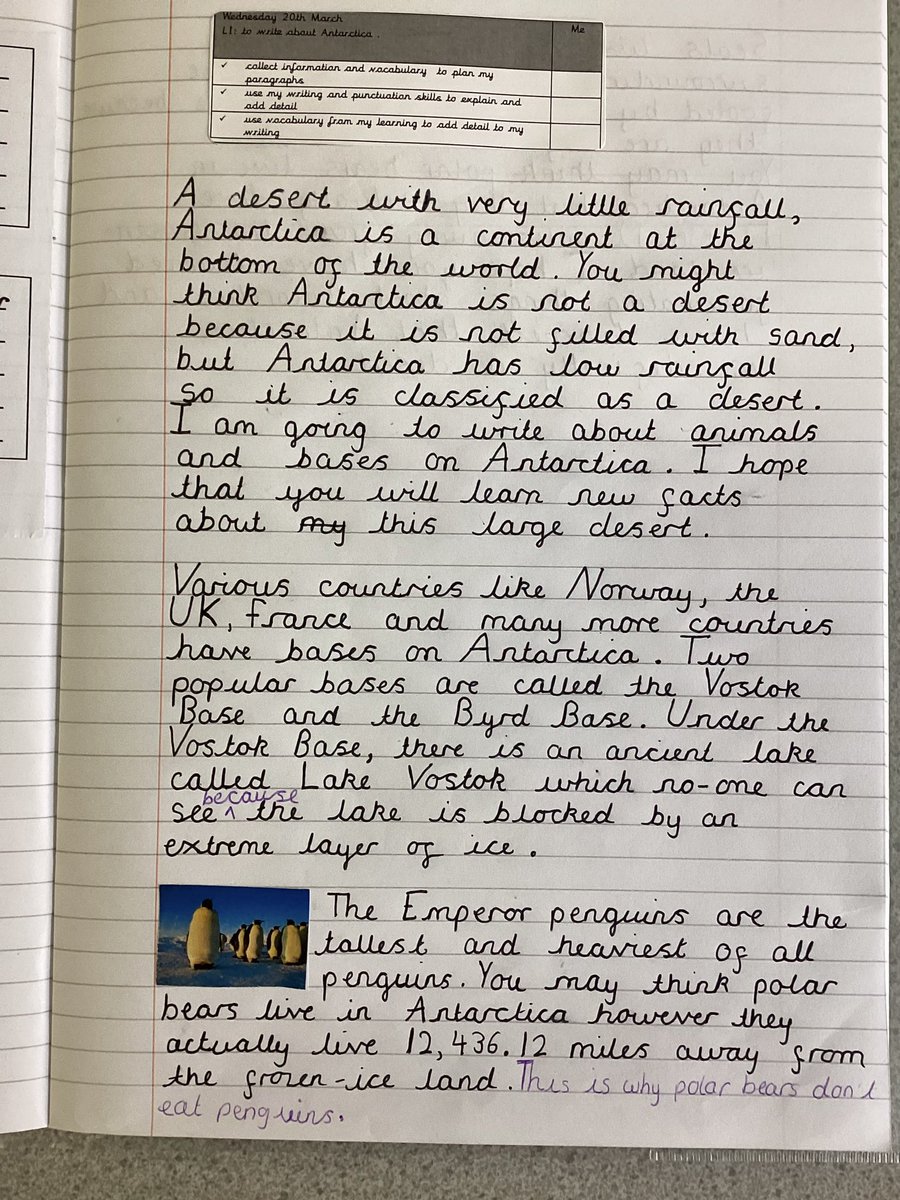 Wednesday 20th March
LI: to write about Antarctica.
Me
✓ collect information and vocabulary to plan my
paragraphs
✓ use my writing and punctuation skills to explain and
add detail
✓ use vocabulary from my learning to add detail to my
writing
A desert with very little rainfall,
Antarctica is a continent at the
bottom of the world. You might
think Antarctica is not a desert
because it is not filled with sand,
but Antarctica has low rainfall
so it is classified as a desert.
I am going to write about animals
and bases on Antarctica. I hope
that you will learn new facts
about my this large desert.
Various countries like Norway, the
UK, france and many more countries
have bases on Antarctica. Two
popular bases are called the Vostok
Base and the Byrd Base. Under the
Vostok Base, there is an ancient lake
called Lake Vostok which no-one can
because
see ^ the lake is blocked by an
extreme layer of ice.
The Emperor penguins are the
tallest and heaviest of all
penguins. You may think polar
bears live in Antarctica however they
actually live 12,436.12 miles away from
the frozen-ice land. This is why polar bears don't
eat penguins.